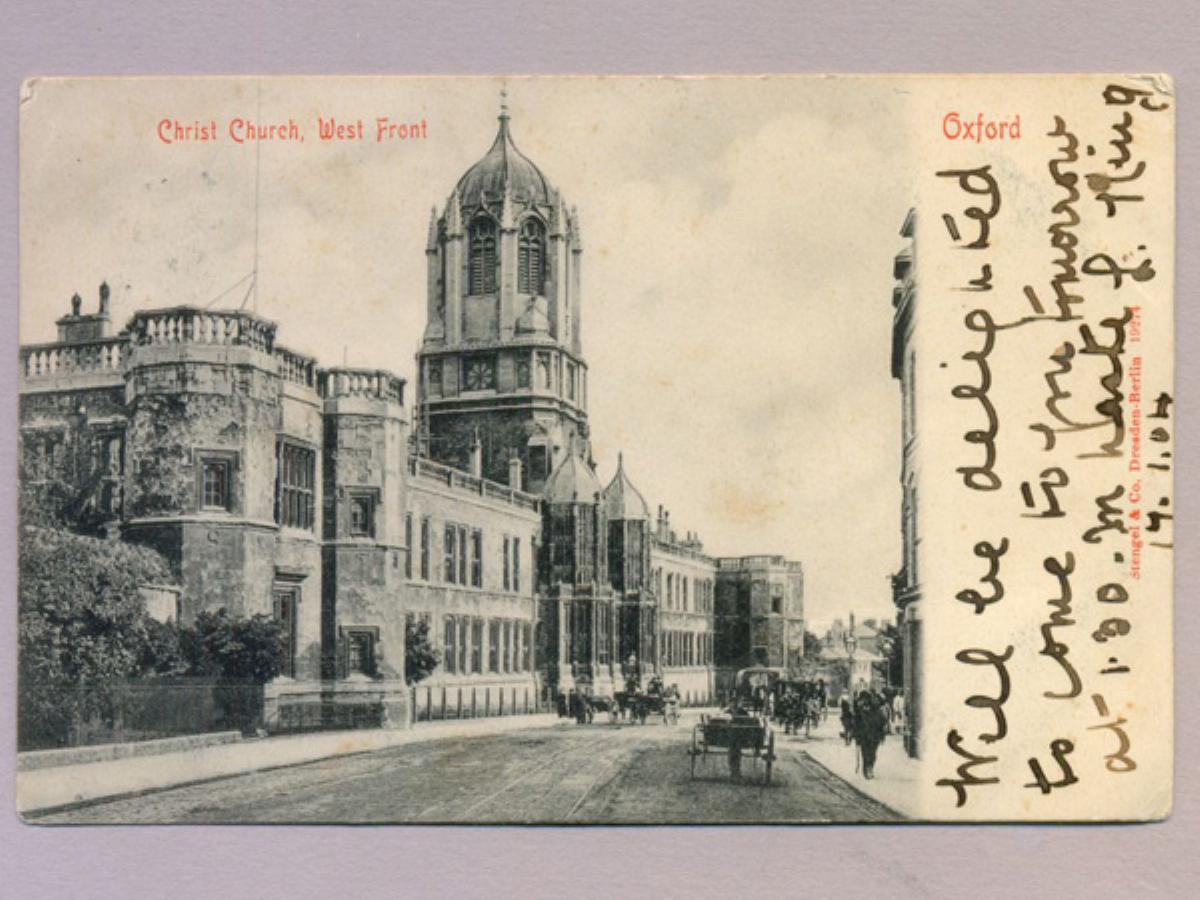 Christ Church, West Front
Oxford
Will be delighted
to come to you tomorrow
at 1.30. In haste J. King
Stengel & Co., Dresden-Berlin 19274
19.1.04